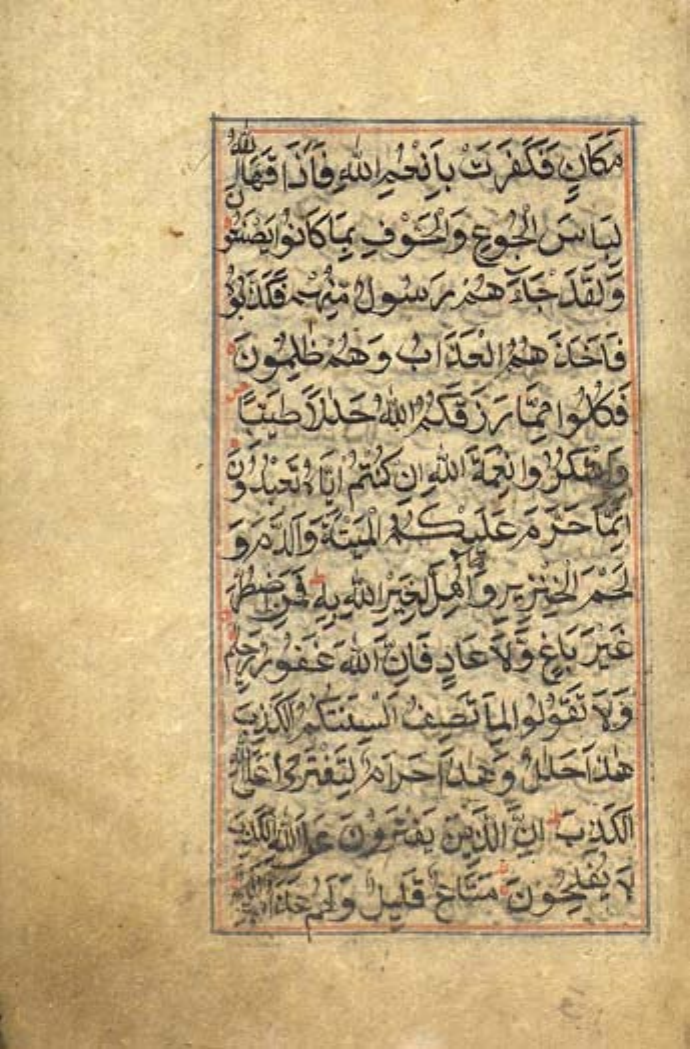 مَكَانٍ فَكَفَرَتْ بِاَنْعُمِ اللّٰهِ فَاَذَاقَهَا اللّٰهُ
لِبَاسَ الْجُوْعِ وَالْخَوْفِ بِمَا كَانُوْا يَصْنَعُوْنَ
وَلَقَدْ جَآءَهُمْ رَسُوْلٌ مِّنْهُمْ فَكَذَّبُوْهُ
فَاَخَذَهُمُ الْعَذَابُ وَهُمْ ظٰلِمُوْنَ
فَكُلُوْا مِمَّا رَزَقَكُمُ اللّٰهُ حَلٰلًا طَيِّبًا
وَاشْكُرُوْا نِعْمَةَ اللّٰهِ اِنْ كُنْتُمْ اِيَّاهُ تَعْبُدُوْنَ
اِنَّمَا حَرَّمَ عَلَيْكُمُ الْمَيْتَةَ وَالدَّمَ وَ
لَحْمَ الْخِنْزِيْرِ وَمَآ اُهِلَّ لِغَيْرِ اللّٰهِ بِهٖ فَمَنِ اضْطُرَّ
غَيْرَ بَاغٍ وَّلَا عَادٍ فَاِنَّ اللّٰهَ غَفُوْرٌ رَّحِيْمٌ
وَلَا تَقُوْلُوْا لِمَا تَصِفُ اَلْسِنَتُكُمُ الْكَذِبَ
هٰذَا حَلٰلٌ وَّهٰذَا حَرَامٌ لِّتَفْتَرُوْا عَلَى اللّٰهِ
الْكَذِبَ اِنَّ الَّذِيْنَ يَفْتَرُوْنَ عَلَى اللّٰهِ الْكَذِبَ
لَا يُفْلِحُوْنَ مَتَاعٌ قَلِيْلٌ وَّلَهُمْ عَذَابٌ اَلِيْمٌ